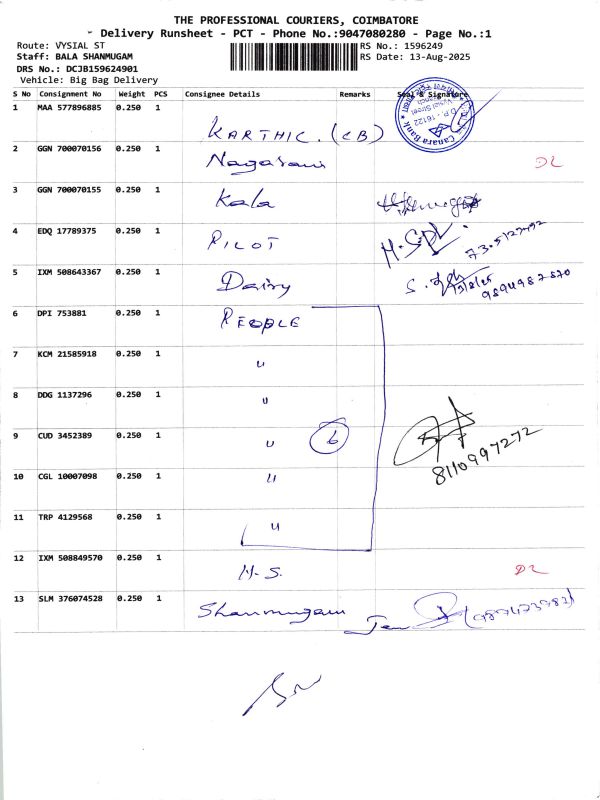 THE PROFESSIONAL COURIERS, COIMBATORE
Delivery Runsheet - PCT - Phone No.:9047080280 - Page No.:1
Route: VYSIAL ST RS No.: 1596249
Staff: BALA SHANMUGAM RS Date: 13-Aug-2025
DRS No.: DCJB159624901
Vehicle: Big Bag Delivery
S No Consignment No Weight PCS Consignee Details Remarks Seal & Signature
1 MAA 577896885 0.250 1 KARTHIC. (CB) Canara Bank D.P.: 16122 Vysial Street
2 GGN 700070156 0.250 1 Nagarani DL
3 GGN 700070155 0.250 1 Kala
4 EDQ 17789375 0.250 1 PILOT
5 IXM 508643367 0.250 1 Dairy 9894987870
6 DPI 753881 0.250 1 PEOPLE
7 KCM 21585918 0.250 1 u
8 DDG 1137296 0.250 1 u
9 CUD 3452389 0.250 1 u 6 8110997272
10 CGL 10007098 0.250 1 u
11 TRP 4129568 0.250 1 u
12 IXM 508849570 0.250 1 H.S. DL
13 SLM 376074528 0.250 1 Shanmugam